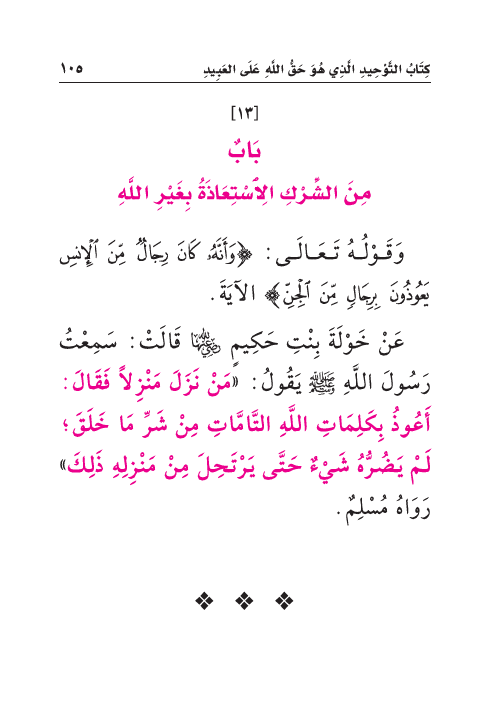 كِتَابُ التَّوْحِيدِ الَّذِي هُوَ حَقُّ اللَّهِ عَلَى العَبِيدِ ١٠٥
[١٣]
بَابٌ
مِنَ الشِّرْكِ الِاسْتِعَاذَةُ بِغَيْرِ اللَّهِ
وَقَوْلُهُ تَعَالَى: ﴿وَأَنَّهُۥ كَانَ رِجَالٌ مِّنَ ٱلْإِنسِ
يَعُوذُونَ بِرِجَالٍ مِّنَ ٱلْجِنِّ﴾ الآيَةَ.
عَنْ خَوْلَةَ بِنْتِ حَكِيمٍ رضي الله عنها قَالَتْ: سَمِعْتُ
رَسُولَ اللَّهِ ﷺ يَقُولُ: «مَنْ نَزَلَ مَنْزِلاً فَقَالَ:
أَعُوذُ بِكَلِمَاتِ اللَّهِ التَّامَّاتِ مِنْ شَرِّ مَا خَلَقَ؛
لَمْ يَضُرُّهُ شَيْءٌ حَتَّى يَرْتَحِلَ مِنْ مَنْزِلِهِ ذَلِكَ»
رَوَاهُ مُسْلِمٌ.